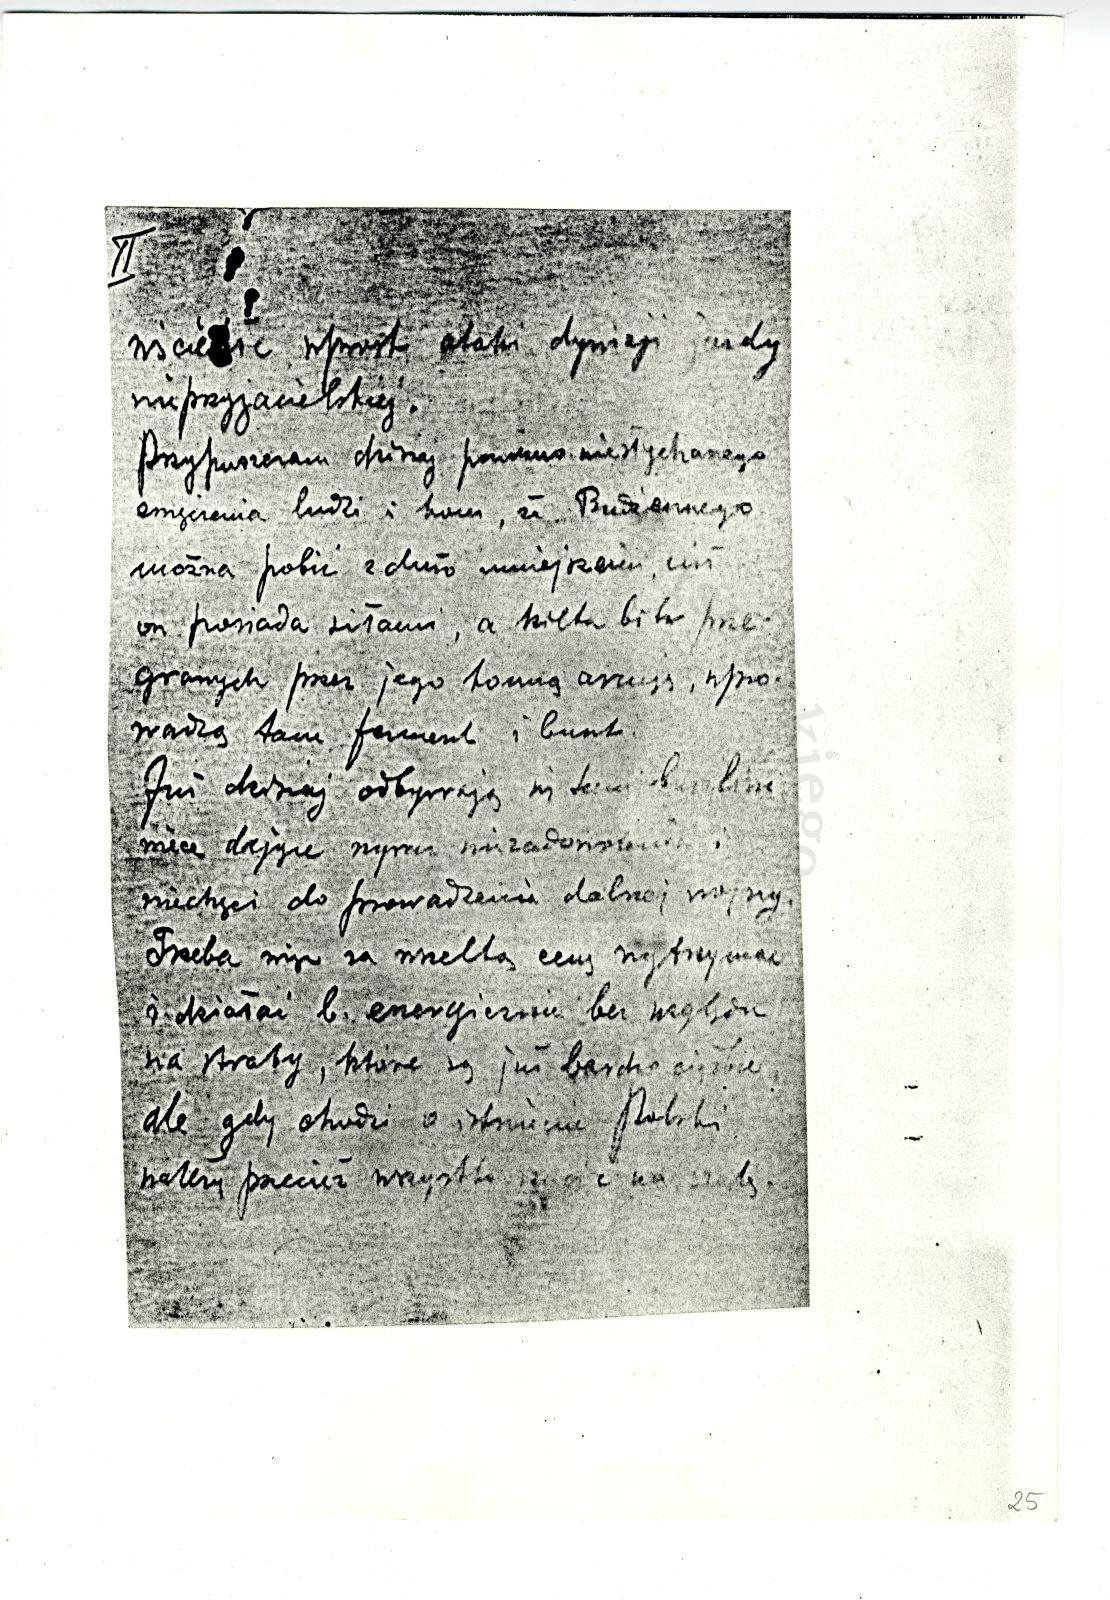 II
wściekłe wprost ataki dywizji jazdy
nieprzyjacielskiej.
Przypuszczam dzisiaj pomimo niesłychanego
zmęczenia ludzi i koni, że Budiennego
można pobić z dużo mniejszemi, niż
on posiada siłami, a kilka bitw prze-
granych przez jego konną armję, wpro-
wadzą tam ferment i bunt.
Już dzisiaj odbywają się tam burzliwe
wiece dające wyraz niezadowolenia i
niechęci do prowadzenia dalszej wojny.
Trzeba więc za wszelką cenę wytrzymać
i działać b. energicznie bez względu
na straty, które są już bardzo ciężkie,
ale gdy chodzi o istnienie Polski
należy przecież wszystko rzucić na szalę.
kiego
25